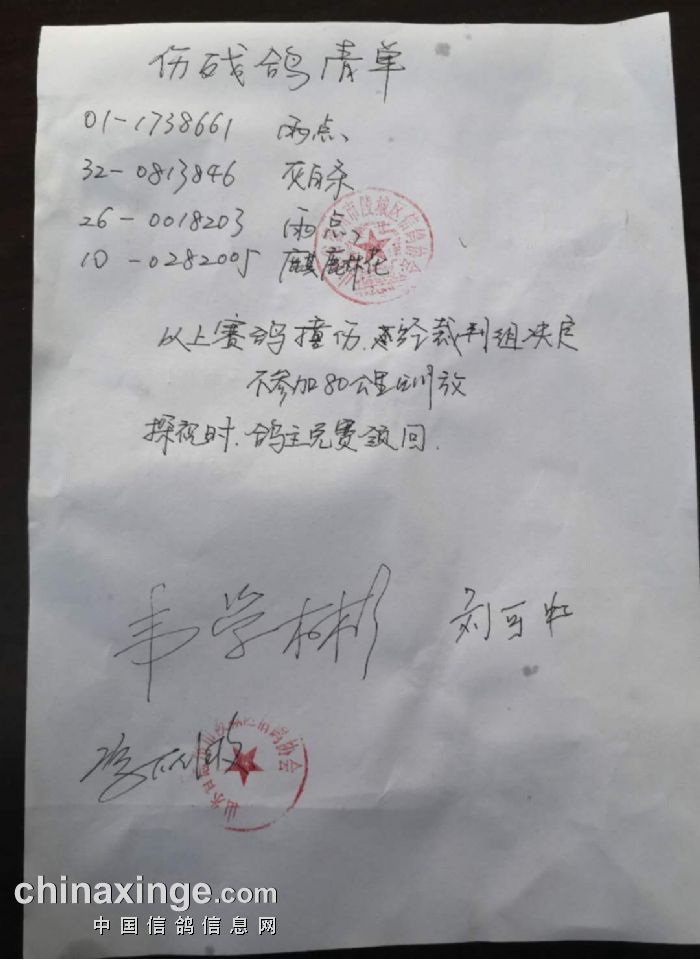 伤残鸽清单
01-1738661 雨点、
32-0813846 灰白条
26-0018203 雨点、
10-0282005 麒麟花
市陵城区信鸽协会
以上赛鸽撞伤.经裁判组决定
不参加80公里训放
探视时.鸽主免费领回.
韦学彬
信鸽协会
chinaxinge.com
中国信鸽信息网